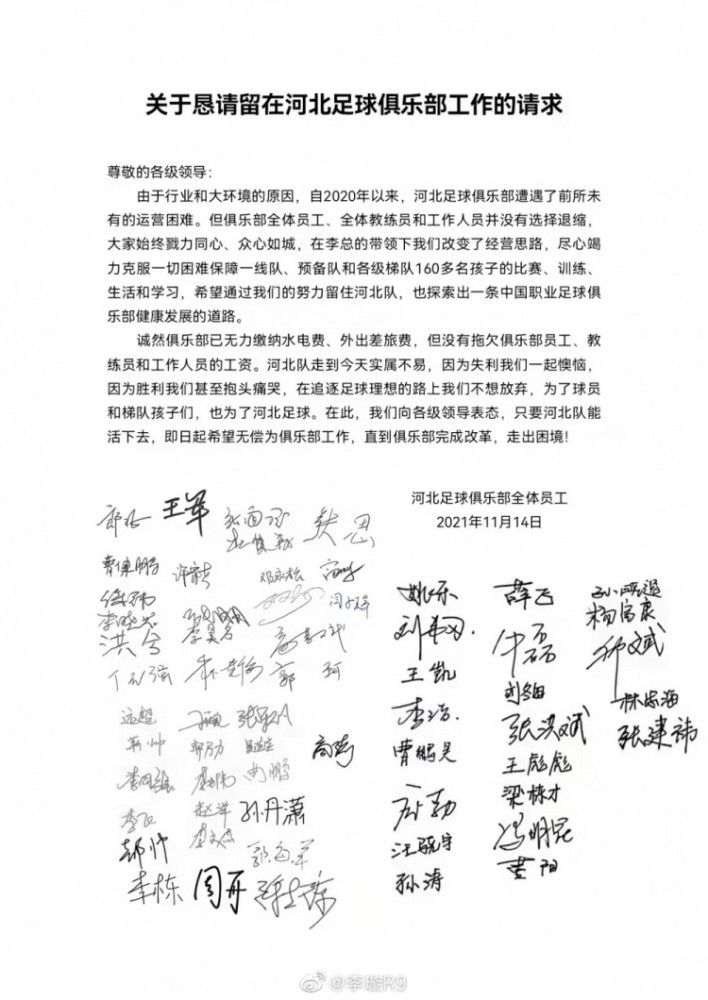 关于恳请留在河北足球俱乐部工作的请求
尊敬的各级领导：
由于行业和大环境的原因，自2020年以来，河北足球俱乐部遭遇了前所未
有的运营困难。但俱乐部全体员工、全体教练员和工作人员并没有选择退缩，
大家始终戮力同心、众心如城，在李总的带领下我们改变了经营思路，尽心竭
力克服一切困难保障一线队、预备队和各级梯队160多名孩子的比赛、训练、
生活和学习，希望通过我们的努力留住河北队，也探索出一条中国职业足球俱
乐部健康发展的道路。
诚然俱乐部已无力缴纳水电费、外出差旅费，但没有拖欠俱乐部员工、教
练员和工作人员的工资。河北队走到今天实属不易，因为失利我们一起懊恼，
因为胜利我们甚至抱头痛哭，在追逐足球理想的路上我们不想放弃，为了球员
和梯队孩子们，也为了河北足球。在此，我们向各级领导表态，只要河北队能
活下去，即日起希望无偿为俱乐部工作，直到俱乐部完成改革，走出困境！
河北足球俱乐部全体员工
2021年11月14日
王军
曹保鹏
洪兮
郭珂
远超
孙丹潇
郝帅
李栋
周开
姚乐
王凯
李浩
曹鹏昊
孙涛
薛飞
牛磊
张洪斌
王彪彪
梁栋才
冯明昆
黄阳
杨富康
林忠海
张建祎
@李璇R9